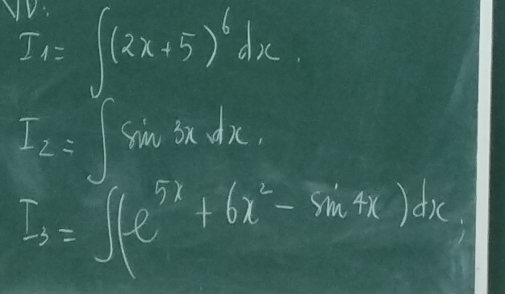 VD:
I₁= ∫(2x+5)⁶dx.
I₂= ∫sin 3x dx.
I₃= ∫(e⁵ˣ + 6x² - sin 4x)dx;